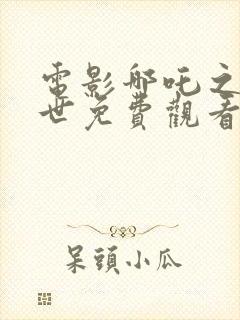 電影哪吒之
世免費觀看
呆頭小瓜